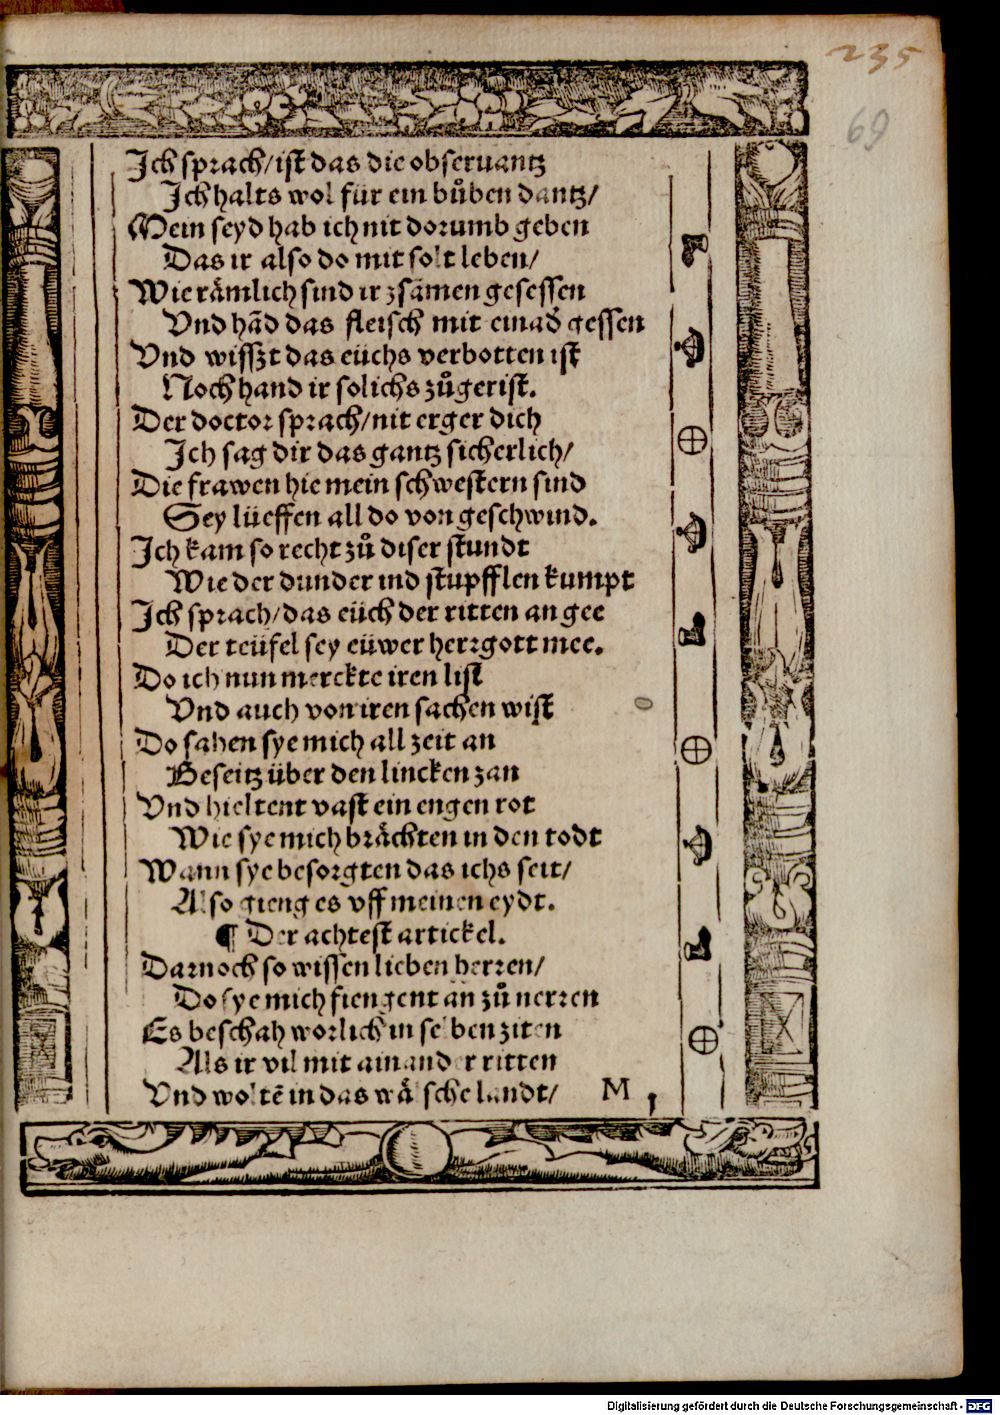 235
69
Ich sprach/ist das die obseruantz
Ich halts wol für ein bůben dantz/
Mein seyd hab ich nit dorumb geben
Das ir also do mit solt leben/
Wie rämlich sind ir zsämen gesessen
Vnd hãd das fleisch mit einad̕ gessen
Vnd wisszt das eüchs verbotten ist
Noch hand ir solichs zůgerist.
Der doctor sprach/nit erger dich
Ich sag dir das gantz sicherlich/
Die frawen hie mein schwestern sind
Sey lüeffen all do von geschwind.
Ich kam so recht zů diser stundt
Wie der dunder ind stupfflen kumpt
Ich sprach/das eüch der ritten an gee
Der teüfel sey eüwer herrgott mee.
Do ich nun merckte iren list
Vnd auch von iren sachen wist
Do sahen sye mich all zeit an
Beseitz über den lincken zan
Vnd hieltent vast ein engen rot
Wie sye mich brächten in den todt
Wann sye besorgten das ichs seit/
Also gieng es vff meinen eydt.
¶ Der achtest artickel.
Darnoch so wissen lieben herren/
Do sye mich fiengent an zů nerren
Es beschah worlich in selben ziten
Als ir vil mit ainander ritten
Vnd woltẽ in das wälsche landt/ M
Digitalisierung gefördert durch die Deutsche Forschungsgemeinschaft - DFG